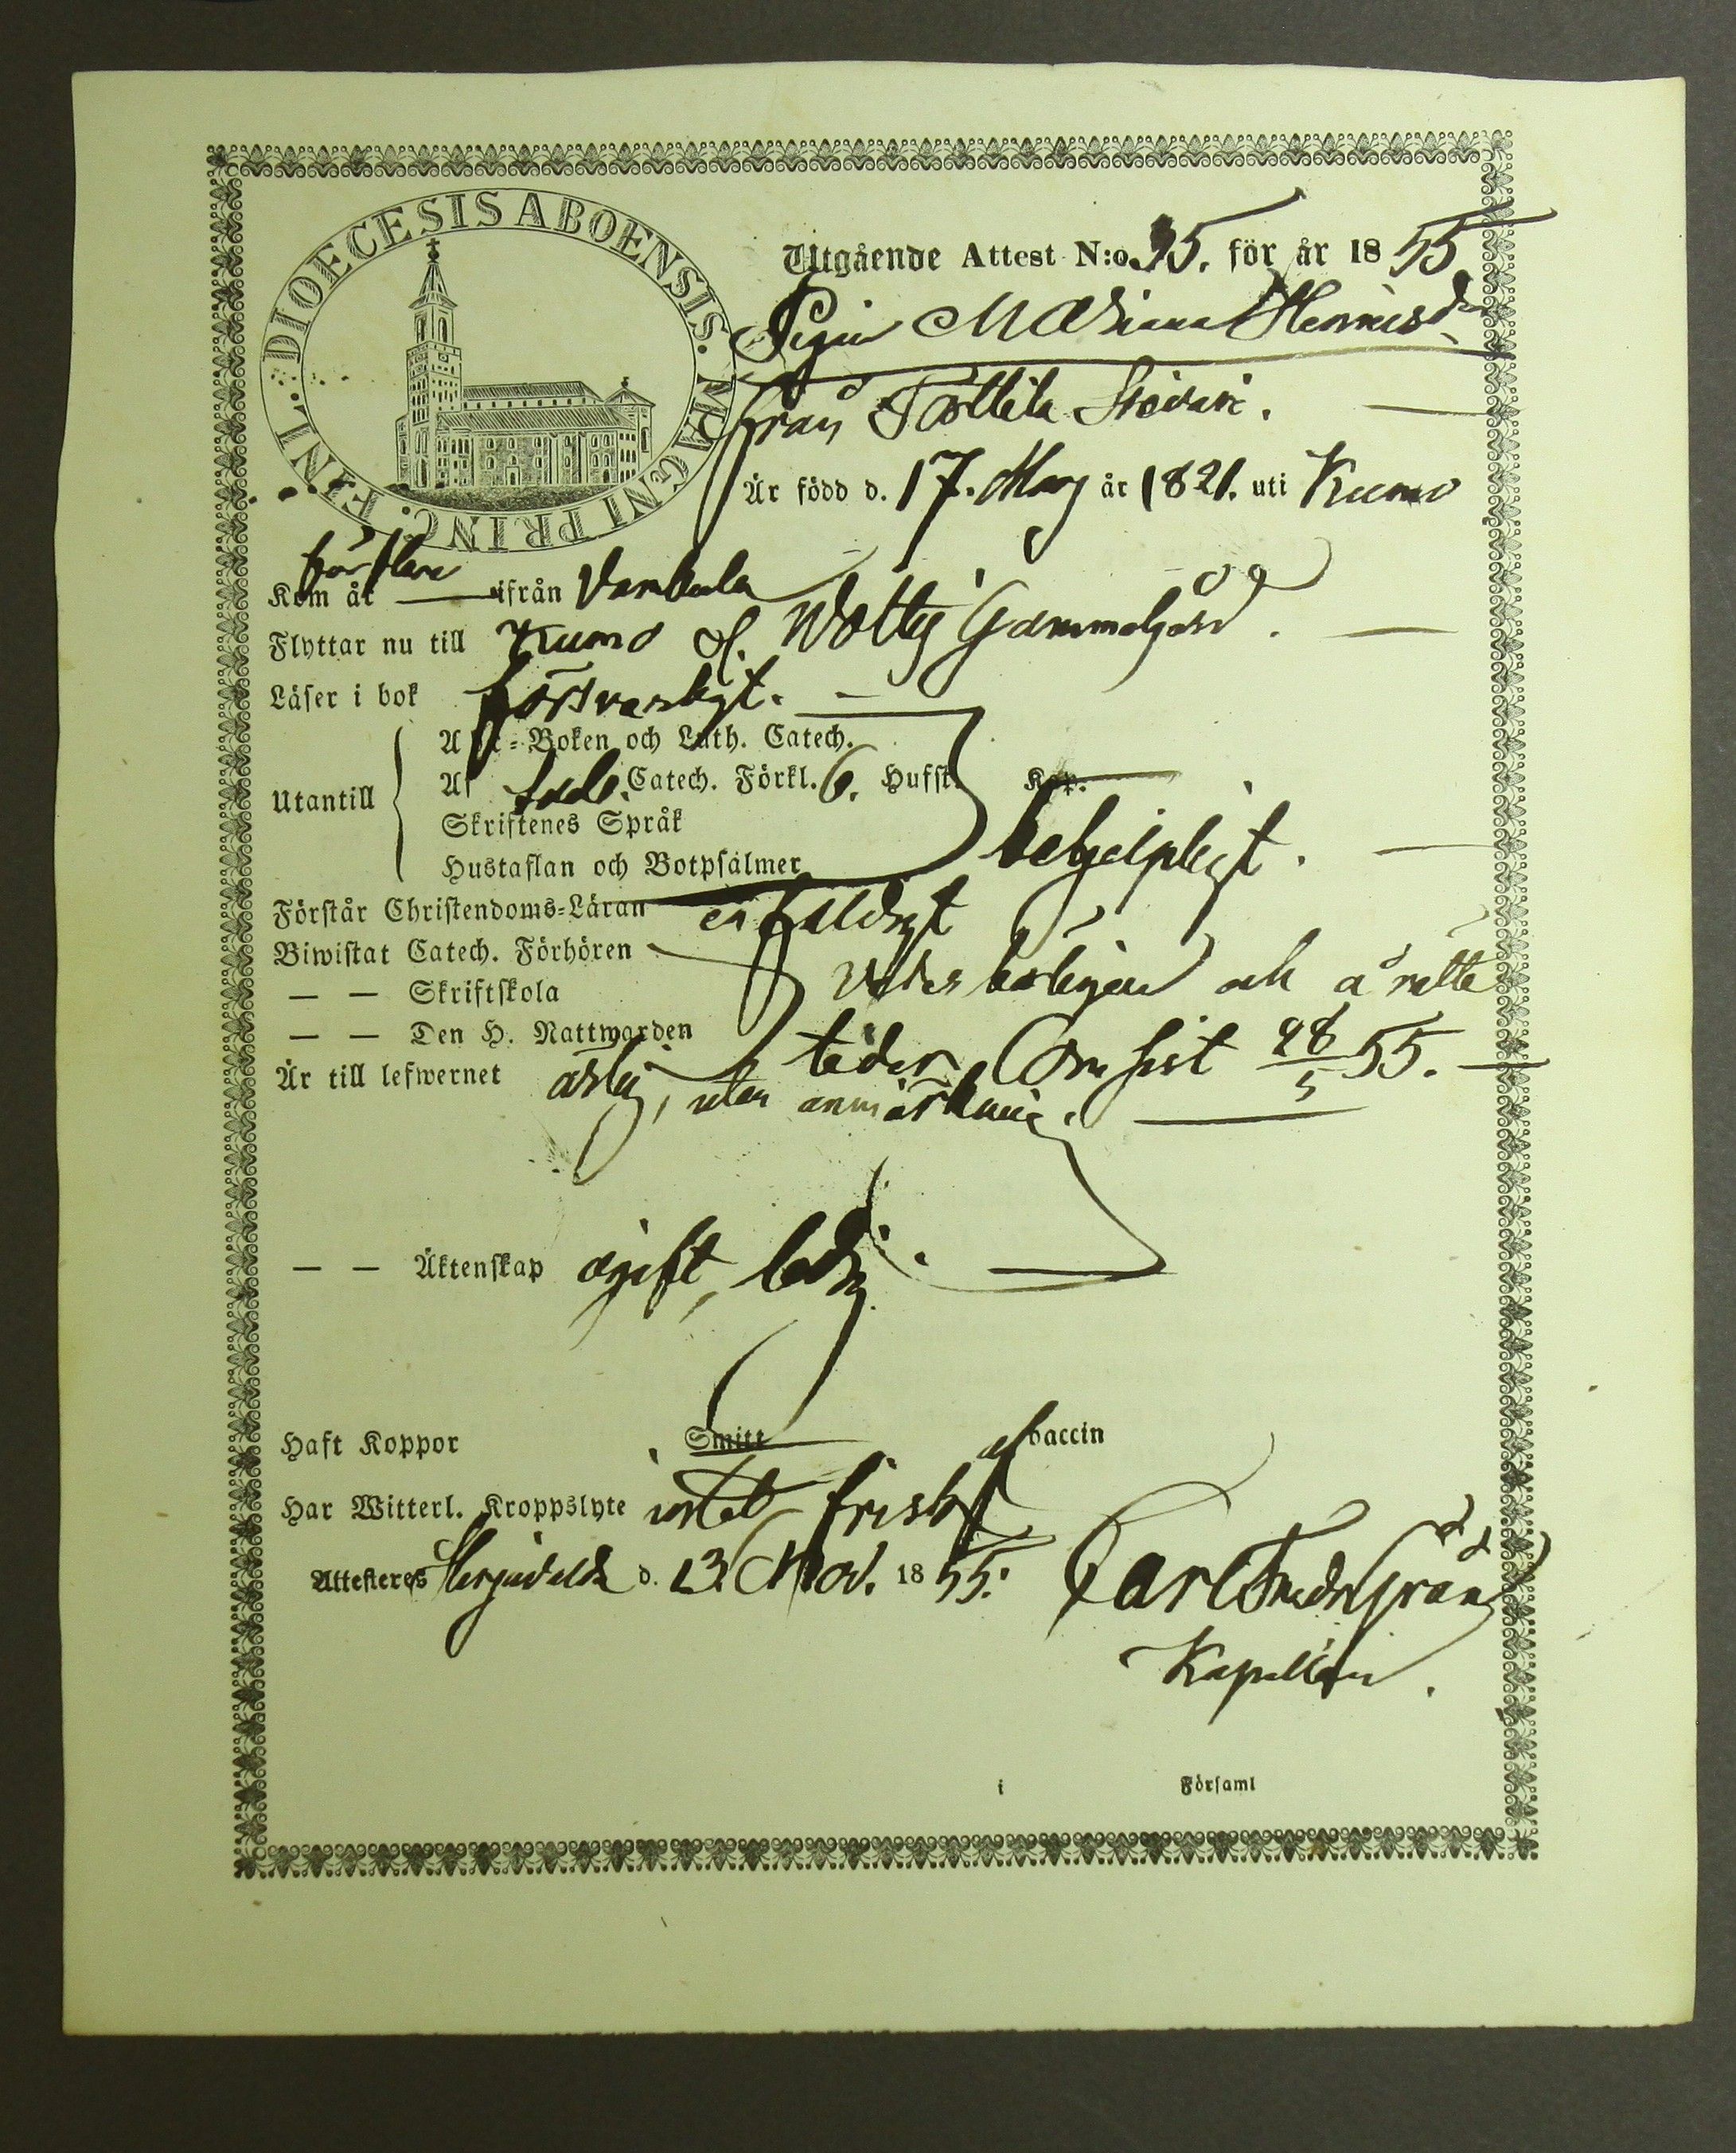 DIOECESIS ABOENSIS. MAGNI PRINC. FINL.
Utgående Attest N:o 35. för år 1855
Pigan M Adriana Henricsdr
från Tottila
Är född d. 17. Maij år 1821. uti Kumo
för flere
Kom år — ifrån Vambula
Flyttar nu till Kumo s. Wottij Gammelgård.
Läser i bok försvarligt.
Utantill
ABC-Boken och Luth. Catech.
Af Catech. Förkl. 6. Hufst. Kap.
Skriftenes Språk
Hustaflan och Botpsalmer
behjelpligt.
Förstår Christendoms-Läran enfaldigt
Biwistat Catech. Förhören
— — Skriftskola
vederbörligen och å rätta
— — Den H. Nattwarden tider. Com sist 28/5 55.
Är till lefwernet ärlig, utan anmärkning.
— — Äktenskap ogift, ledig.
Haft Koppor Smitt af vaccin
Har Witterl. Kroppslyte intet frisk
Attesteras d. 13. Nov. 1855. Carl Fredr Grån
Kapellan.
i Församl